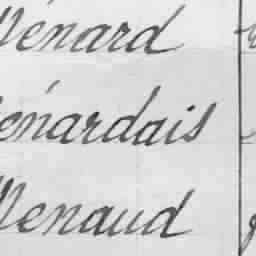 Ménard
Ménardais
Menaud